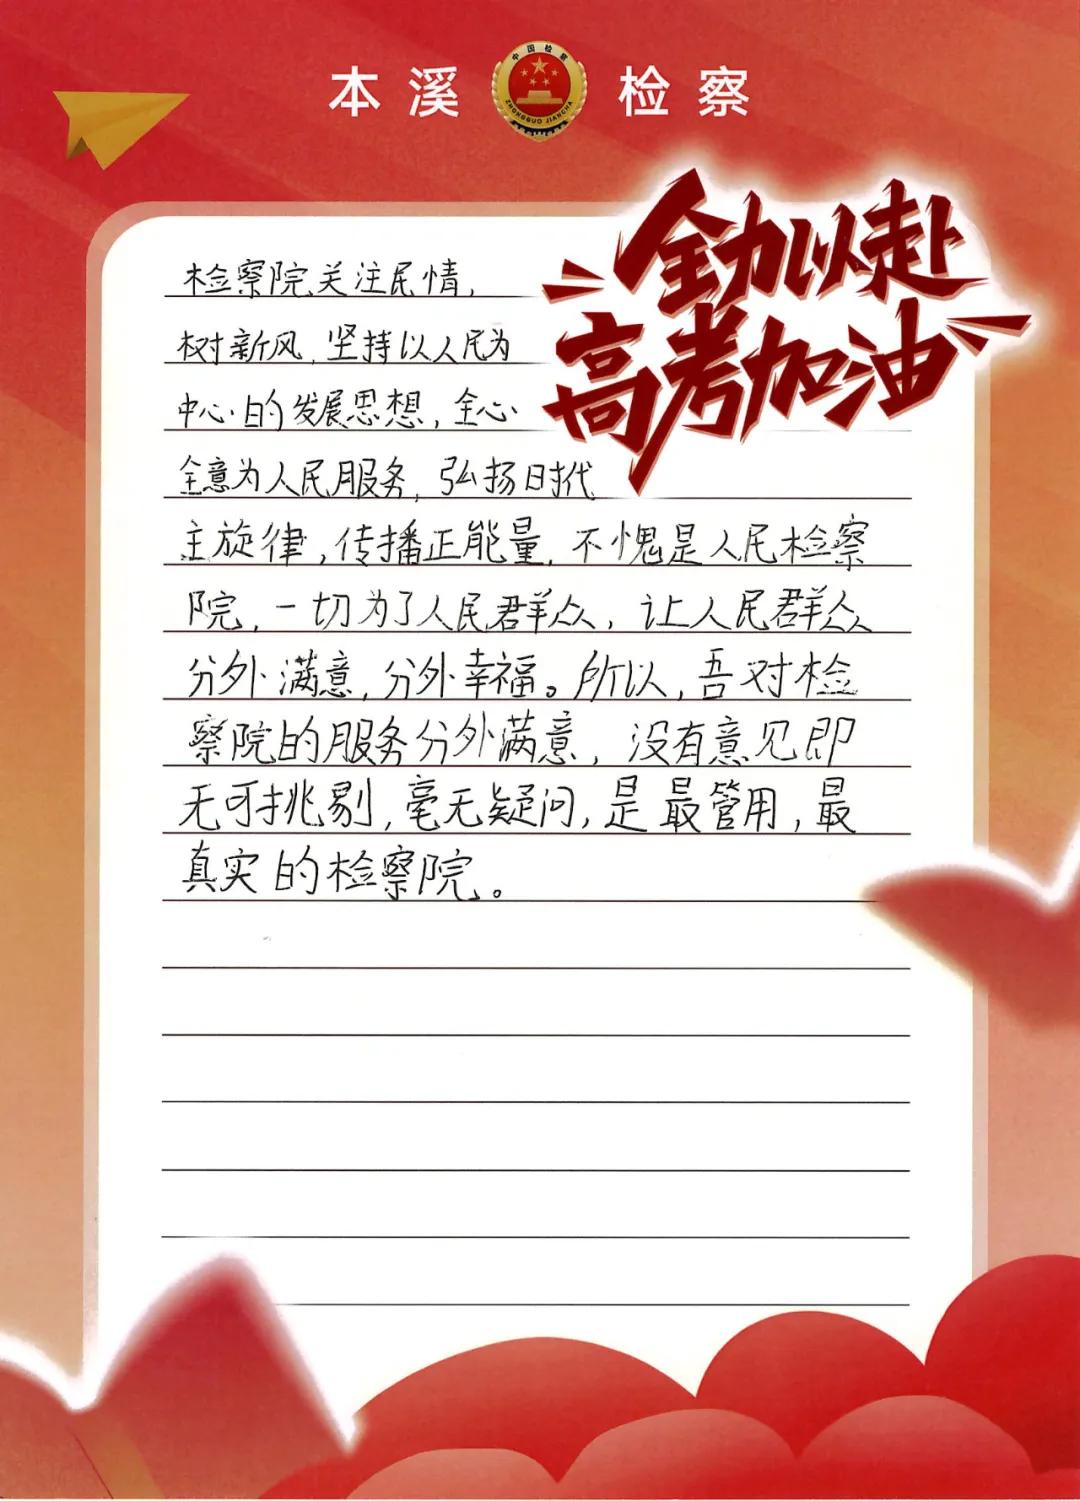 本溪 检察
中国检察
ZHONGGUO JIANCHA
全力以赴
高考加油
检察院关注民情,
树新风,坚持以人民为
中心的发展思想,全心
全意为人民服务,弘扬时代
主旋律,传播正能量,不愧是人民检察
院,一切为了人民群众,让人民群众
分外满意,分外幸福。所以,吾对检
察院的服务分外满意,没有意见即
无可挑剔,毫无疑问,是最管用,最
真实的检察院。